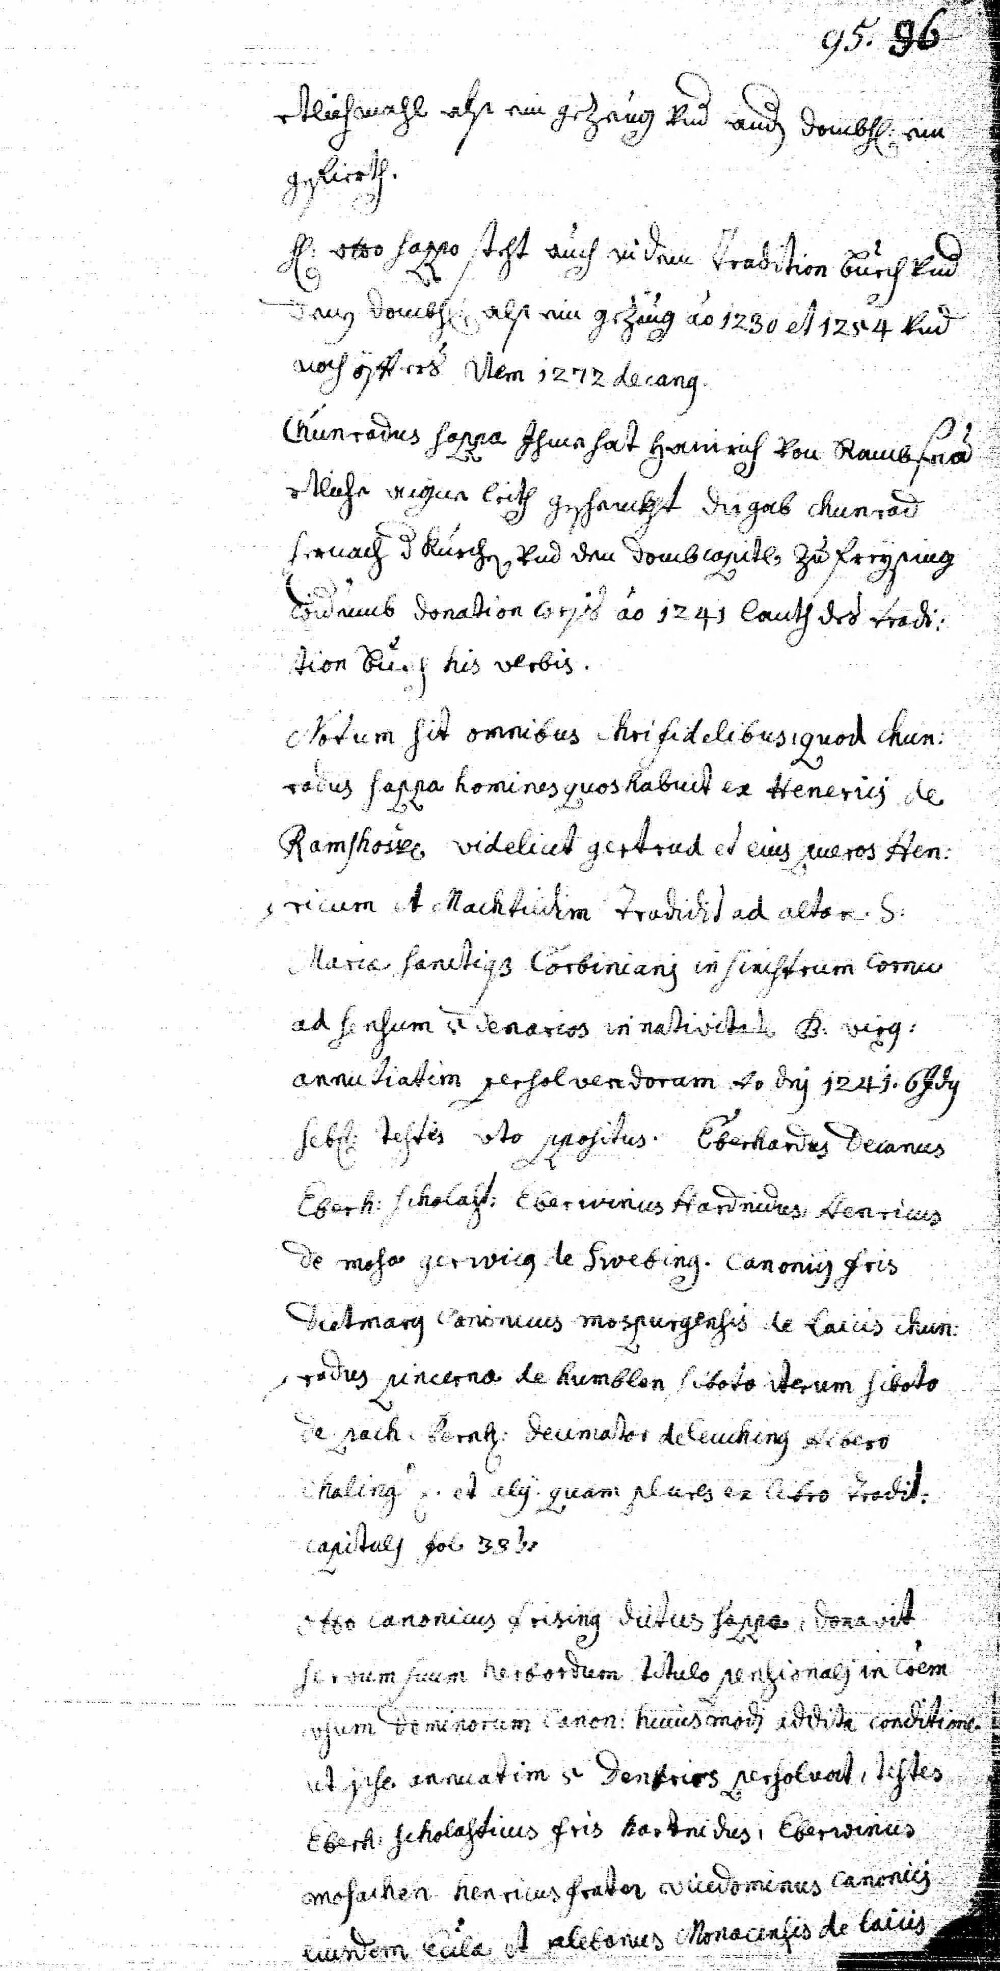 95. 96
etlichmahl alß ein gezeug vnd auch dombh: ein
gefierth.
H: otto sappo steht auch in dem tradition buech vnd
dombh: alß ein gezeug ao 1230 et 1254 vnd
noch öffters Item 1272 decang.
Chunradus sappa Ihme hat Heinrich von Rambs
etliche aigne leith geschenckht die gab chunrad
hernach d kürch vnd den dombcapitl zu freysing
donation ao 1241 lauth des tradi:
tion buech his verbis.
Notum sit omnibus Chri fidelibus, quod Chun:
radus sappa homines quos habuit ex Henericj de
Ramshos videlicet gertrud et eius pueros Hen:
ricum et Machtildim tradidit ad altare S:
Maria sanctiqз Corbinianj in sinistrum Cornu
ad sensum v denarios in nativitate B. virg:
annutiatim persolvendorum Ao dnj 1241. 6 Jdy
sebt: testes oto ppositus. Eberhardus Decanus
Eberh: scholast: Eberwinus Hardnidus, Henricus
de mosa gerwicg de Swebing. Canonicj fris
Dietmarg Canonicus mospurgensis de Laicis chun:
radus pincerna de humblen siboto iterum siboto
de pach. Bernh: decimator de leuching Albero
chaling et alij quam plures ex libro tradit:
capitulj fol 33 b.
Otto canonicus frising dictus sappa, donavit
servum suum herbordum titulo pensionalj in Coem
vsum dominorum Canon: huiusmodj addita conditione.
ut ipse annuatim v denarios persolvat, testes
Eberh: scholasticus fris hartnidus, Eberwinus
mosachen henricus frater vicedominus canonicj
eiusdem Eccla et plebanus Monacensis de laicis